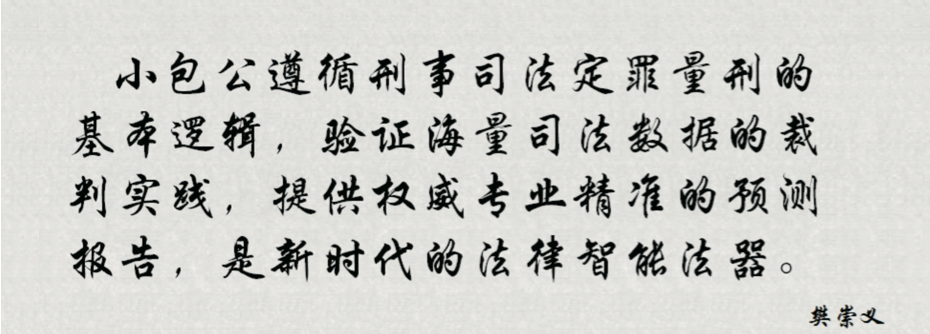 小包公遵循刑事司法定罪量刑的
基本逻辑，验证海量司法数据的裁
判实践，提供权威专业精准的预测
报告，是新时代的法律智能法器。
樊崇义